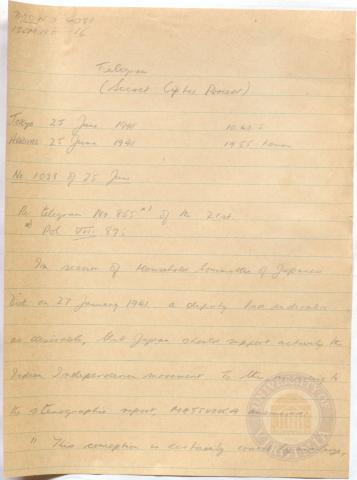 Telegram
(Secret Cipher Process)
Tokyo 25 June 1941
Arrival 25 June 1941 1955 hours
No 1038 of 25 June
Re telegram No 865 of the 21st.
Pol VIII 895
In session of Household Committee of Japanese
Diet on 27 January 1941 a deputy had indicated
as desirable, that Japan should support actively the
Indian Independence movement. To this according to
the stenographic report, MATSUOKA answered:
" This conception is certainly
UNIVERSITY OF VIRGINIA